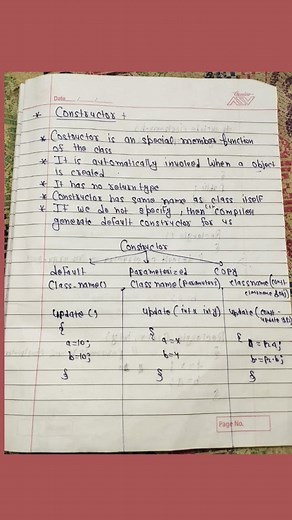 Date
* Constructor +
* Costructor is an special member function
of the class
* It is automatically involved when a object
is created
* It has no return type
* Constructor has same name as class itself
* If we do not specify, then compiler
generate default constructor for us
Constructor
default Parameterized COPY
Class-name() Class name (Parameters)
update () update (int x int y) update (
{ { {
a=10; a=x
b=10; b=y
} } }
Page No.